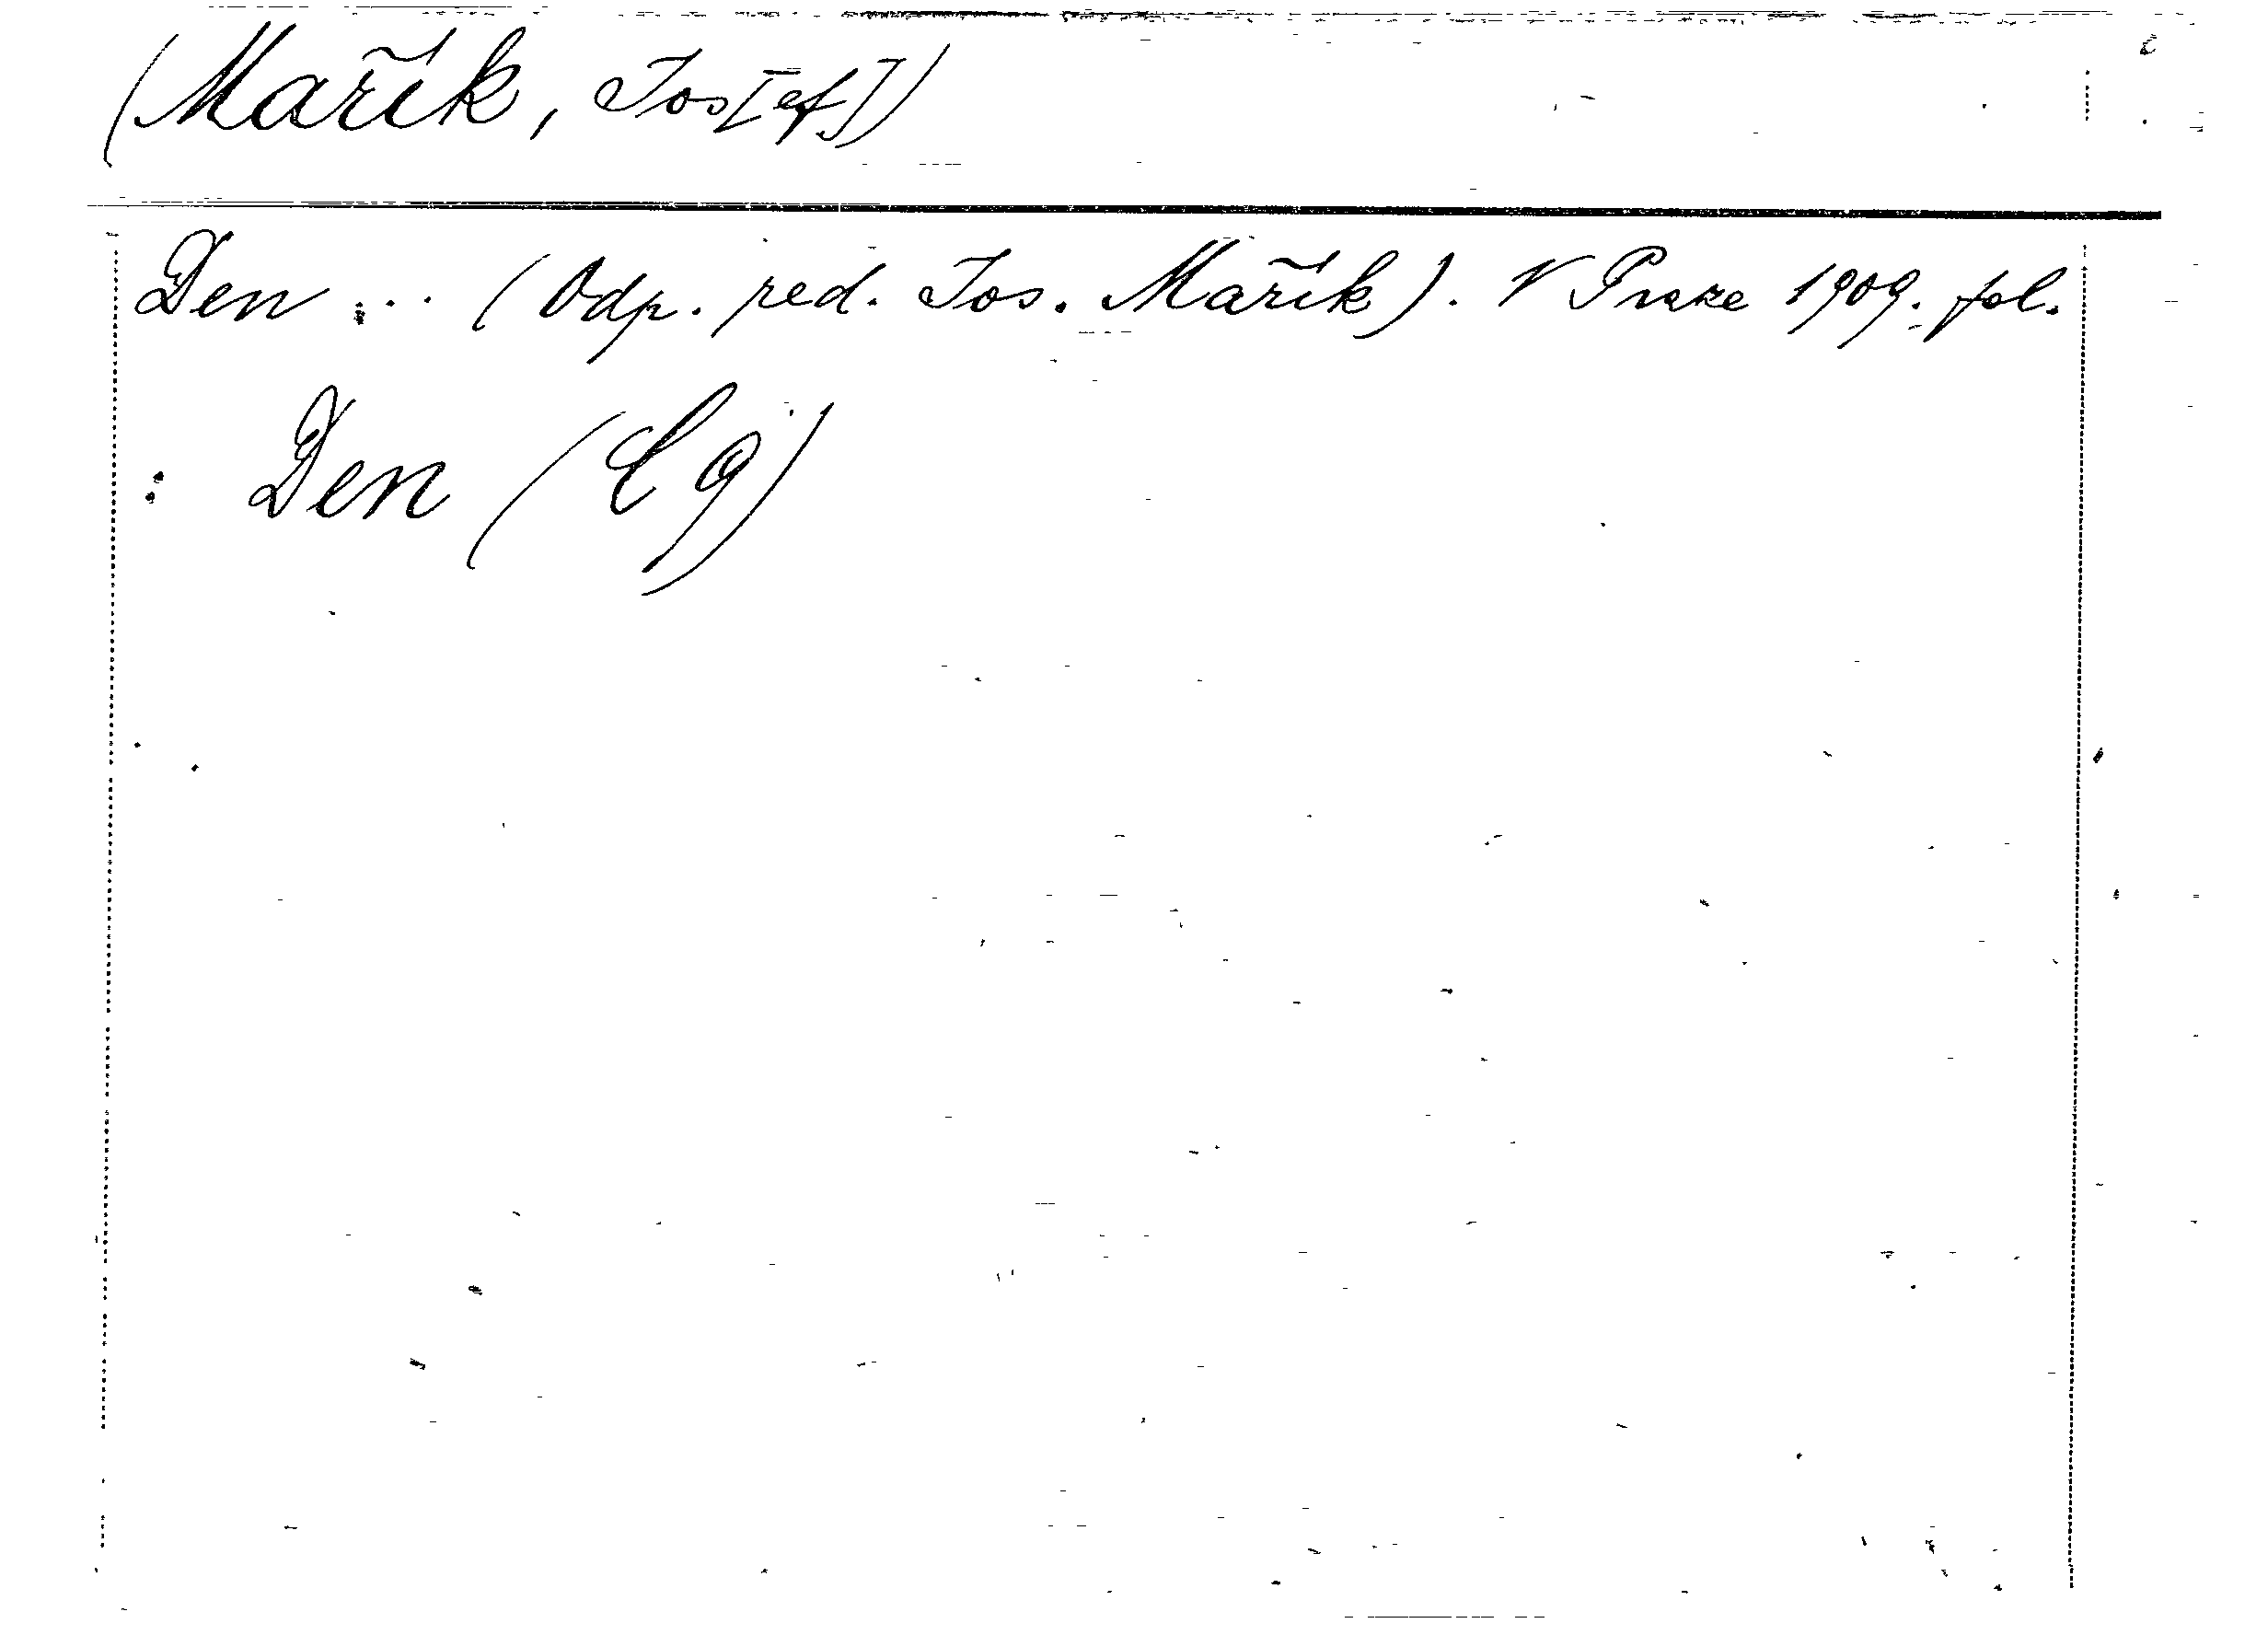 (Mařík, Jos[ef])
Den ... (Odp. red. Jos. Mařík). V Praze 1909. fol.
: Den